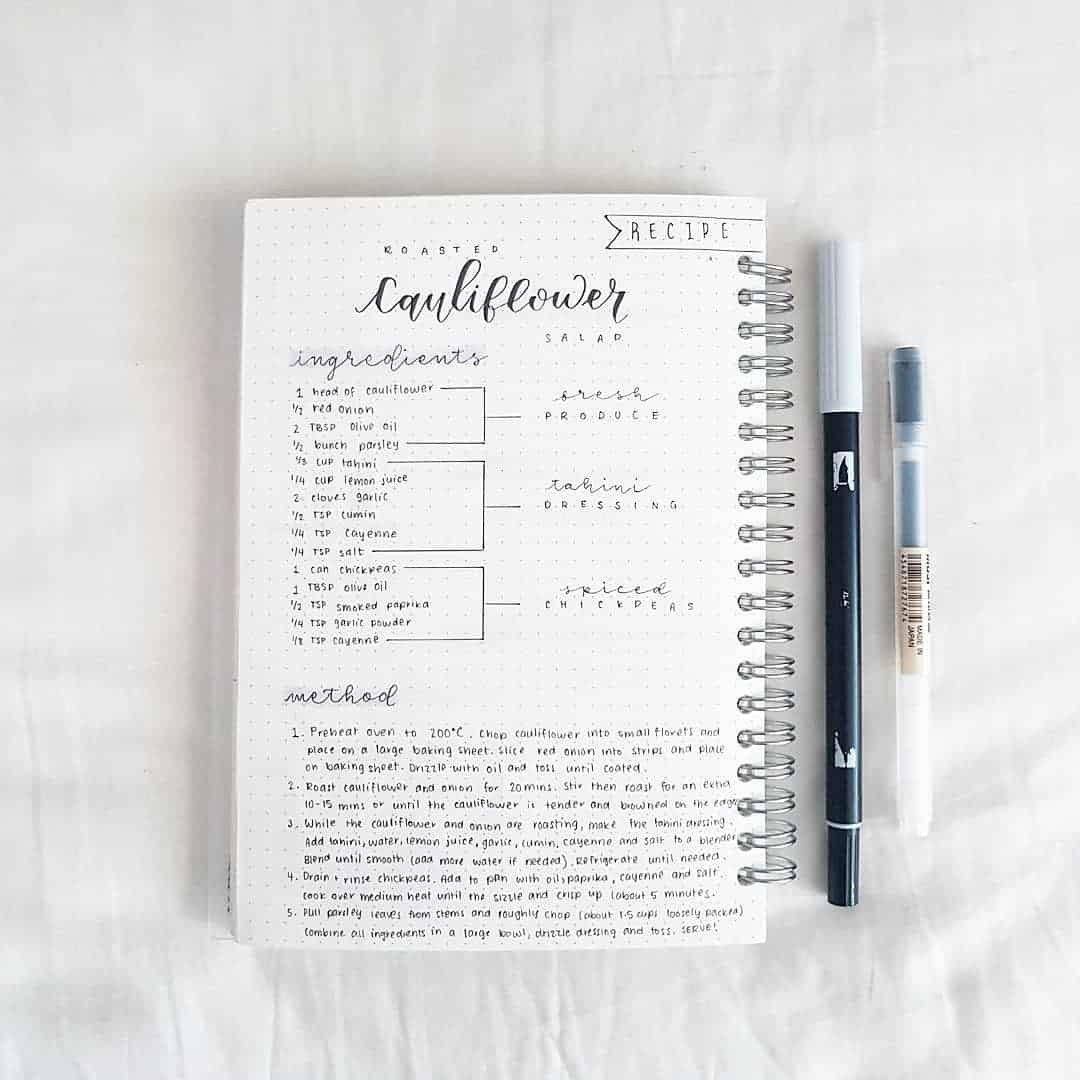 RECIPE
ROASTED
Cauliflower
SALAD
ingredients
1 head of cauliflower
1/2 red onion
2 TBSP olive oil
1/2 bunch parsley
fresh
PRODUCE
1/3 cup tahini
1/4 cup lemon juice
2 cloves garlic
1/2 TSP cumin
1/4 TSP cayenne
1/4 TSP salt
tahini
DRESSING
1 can chickpeas
1 TBSP olive oil
1/2 TSP smoked paprika
1/4 TSP garlic powder
1/8 TSP cayenne
spiced
CHICKPEAS
method
1. Preheat oven to 200°C. Chop cauliflower into small florets and
place on a large baking sheet. Slice red onion into strips and place
on baking sheet. Drizzle with oil and toss until coated.
2. Roast cauliflower and onion for 20 mins. Stir then roast for an extra
10-15 mins or until the cauliflower is tender and browned on the edges
3. While the cauliflower and onion are roasting, make the tahini dressing.
Add tahini, water, lemon juice, garlic, cumin, cayenne and salt to a blender
Blend until smooth (add more water if needed). Refrigerate until needed.
4. Drain + rinse chickpeas. Add to pan with oil, paprika, cayenne and salt.
Cook over medium heat until the sizzle and crisp up (about 5 minutes.
5. Pull parsley leaves from stems and roughly chop (about 1.5 cups loosely packed)
Combine all ingredients in a large bowl, drizzle dressing and toss. SERVE!
MADE IN
JAPAN